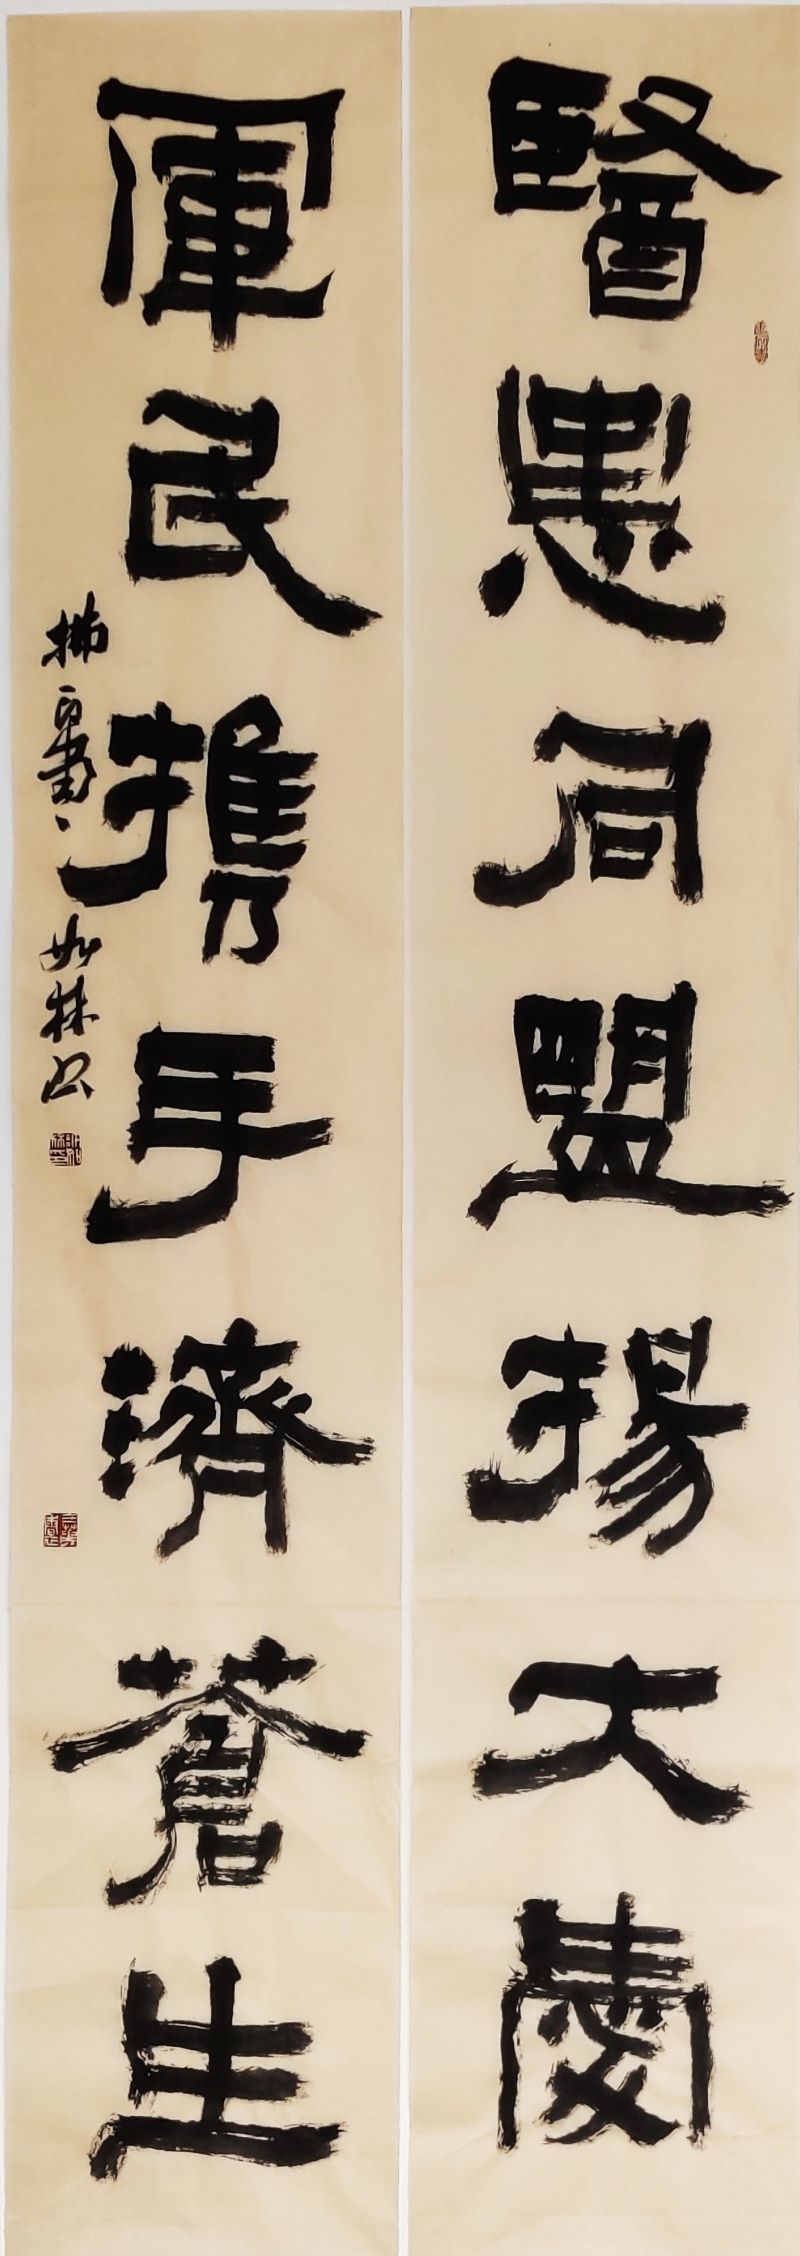 醫患同盟揚大愛
軍民携手濟蒼生
如林書